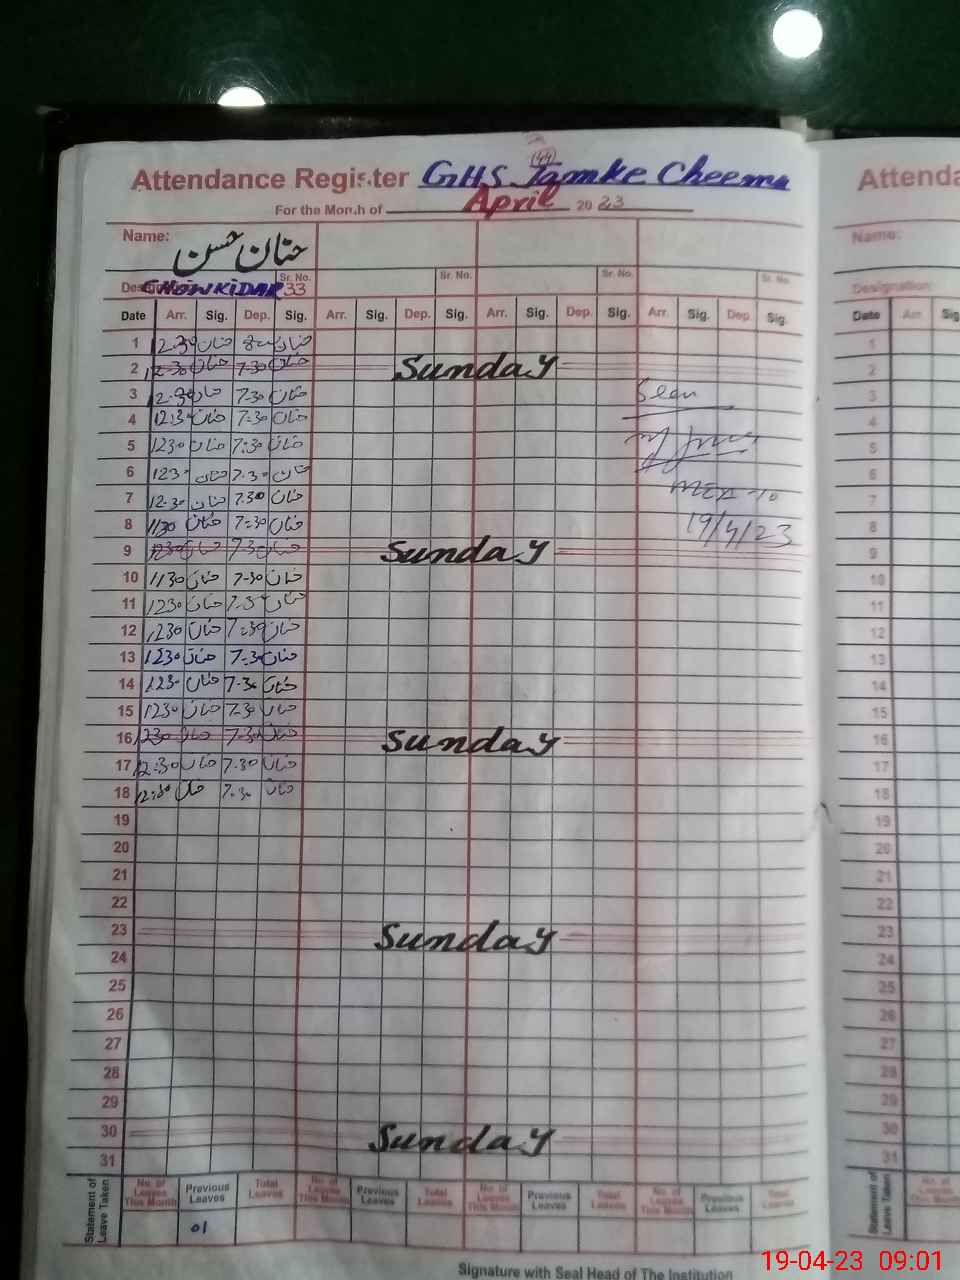 44
Attendance Register GHS Jamke Cheema
For the Month of April 2023
Name: حنان حسن
Designation CHOWKIDAR Sr. No. 33 Sr. No. Sr. No. Sr. No.
Date Arr. Sig. Dep. Sig. Arr. Sig. Dep. Sig. Arr. Sig. Dep. Sig. Arr. Sig. Dep. Sig.
1 12-30 حنان حنان
2 12-30 حنان 7-30 حنان Sunday
3 12-30 حنان 7-30 حنان Seen
4 12:30 حنان 7-30 حنان
5 1230 حنان 7-30 حنان
6 1230 حنان 7-30 حنان
7 12-30 حنان 730 حنان
8 1130 حنان 7-30 حنان 19/4/23
9 1230 حنان 7-30 حنان Sunday
10 1130 حنان 7-30 حنان
11 1230 حنان 7-30 حنان
12 1230 حنان 7:30 حنان
13 1230 حنان 7:30 حنان
14 1230 حنان 7-30 حنان
15 1230 حنان 7-30 حنان
16 1230 حنان 7-30 حنان Sunday
17 12:30 حنان 7-30 حنان
18 12:30 حنان 7-30 حنان
19
20
21
22
23 Sunday
24
25
26
27
28
29
30 Sunday
31
Statement of Leave Taken
No. of Leaves This Month Previous Leaves Total Leaves No. of Leaves This Month Previous Leaves Total Leaves No. of Leaves This Month Previous Leaves Total Leaves No. of Leaves This Month Previous Leaves Total Leaves
01
Signature with Seal Head of The Institution
Attenda
Name:
Designation
Date Arr. Sig
1
2
3
4
5
6
7
8
9
10
11
12
13
14
15
16
17
18
19
20
21
22
23
24
25
26
27
28
29
30
31
Statement of Leave Taken
No. of Leaves This Month
19-04-23 09:01